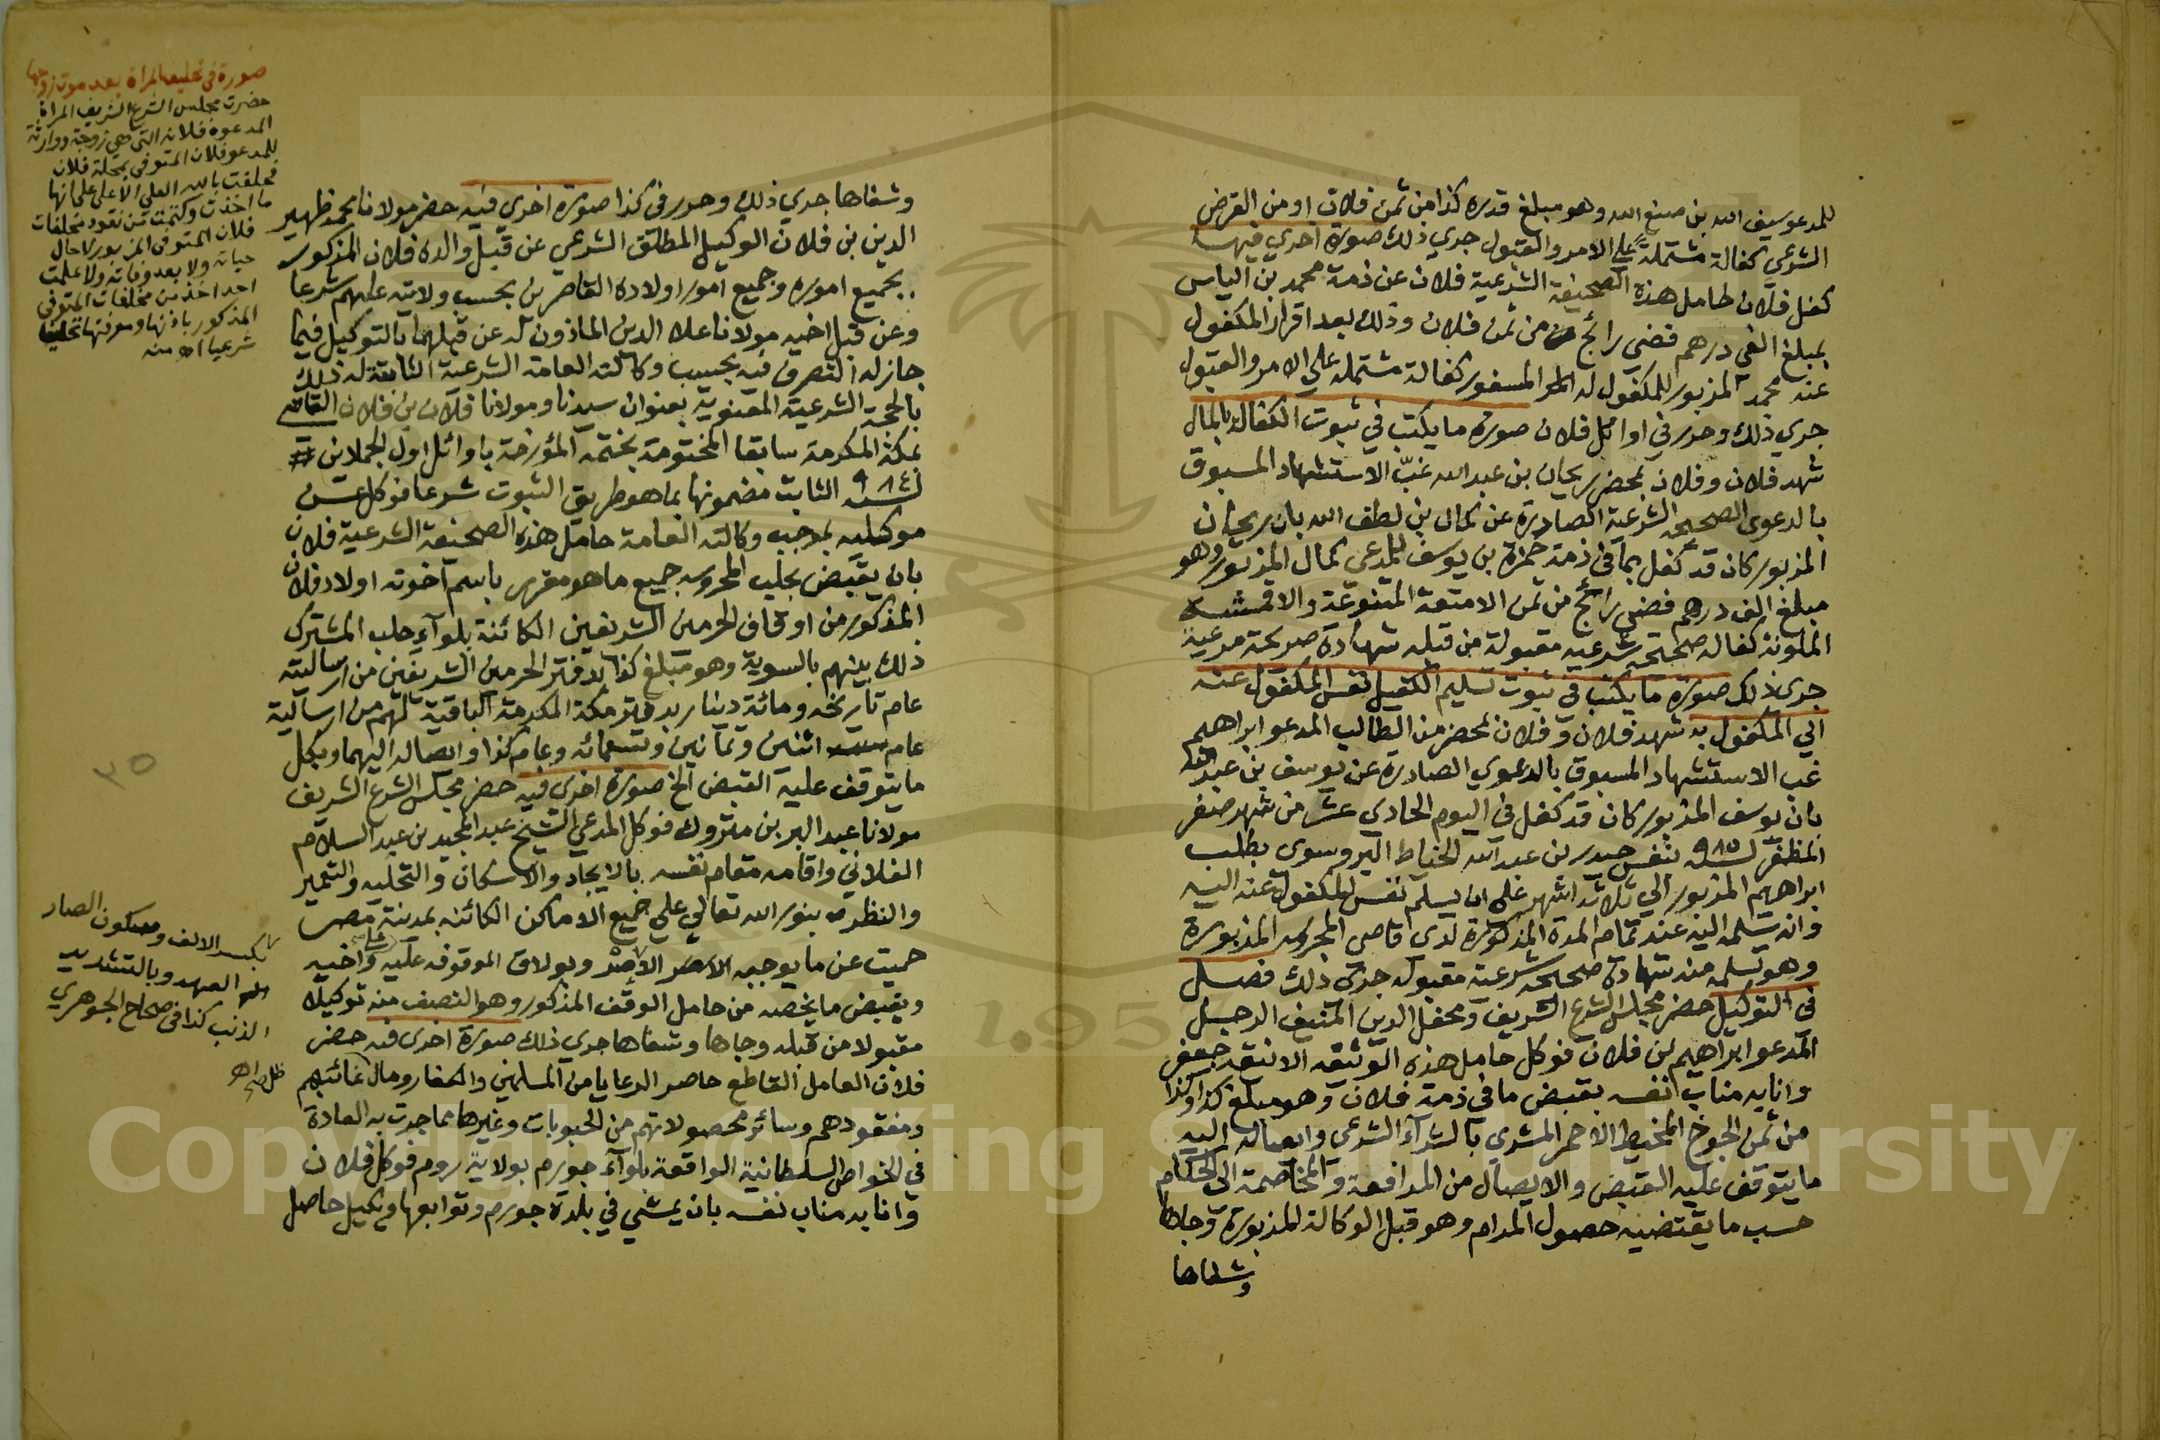 للمدعو سيف الله بن صنع الله وهو مبلغ قدره كذا من ثمن فلان او من القرض
الشرعي كفالة مشتملة على الامر والقبول جري ذلك صورة اخري فيه
كفل فلان حامل هذه الصحيفة الشرعية فلان عن ذمة محمد بن الياس
بمبلغ الفي درهم فضي رائج من ثمن فلان وذلك بعد اقرار المكفول
عنه محمد المزبور للمكفول له المسفور كفالة مشتملة على الامر والقبول
جري ذلك وحرر في اوائل فلان صورة ما يكتب في ثبوت الكفالة بالمال
شهد فلان وفلان بمحضر ريحان بن عبدالله غبّ الاستشهاد المسبوق
بالدعوى الصحيحة الشرعية الصادرة عن كمال بن لطف الله بان ريحان
المزبور كان قد كفل بما في ذمة حمزة بن يوسف للمدعي كمال المزبور وهو
مبلغ الف درهم فضي رائج من ثمن الامتعة المتنوعة والاقمشة
الملونة كفالة صحيحة شرعية مقبولة من قبله شهادة صريحة مرعية
جري ذلك صورة ما يكتب في ثبوت تسليم الكفيل نفس المكفول عنه
الي المكفول به شهد فلان وفلان بمحضر من الطالب المدعو ابراهيم
غب الاستشهاد المسبوق بالدعوي الصادرة عن يوسف بن عبدالله
بان يوسف المزبور كان قد كفل في اليوم الحادي عشر من شهر صفر
المظفر لسنة ٩٨٥ بنفس حيدر بن عبد الله الخياط البروسوى بطلب
ابراهيم المزبور الي ثلاثة اشهر على ان يسلم نفس المكفول عنه اليه
وانه سلمه اليه عند تمام المدة المذكورة لدى قاضي المحروسة المزبورة
وهو تسلمه منه شهادة صحيحة شرعية مقبولة جرى ذلك فصل
في التوكيل حضر مجلس الشرع الشريف ومحفل الدين المنيف الرجل
المدعو ابراهيم بن فلان فوكل حامل هذه الوثيقة الانيقة جعفر
وانابه مناب نفسه بقبض ما في ذمة فلان وهو مبلغ كذا وكذا
من ثمن الجوخ المخيط الاحمر المشرى بالشراء الشرعي وايصاله اليه
ما يتوقف عليه القبض والايصال من المدافعة والمخاصمة الى الحكام
حسب ما يقتضيه حصول المرام وهو قبل الوكالة المزبورة وجاها
وشفاها
وشفاها جري ذلك وحرر في كذا صورة اخرى فيه حضر مولانا محمد ظهير
الدين بن فلان الوكيل المطلق الشرعي عن قبل والده فلان المذكور
بجميع اموره وجميع امور اولاده القاصرين بحسب ولايته عليهم شرعا
وعن قبل اخيه مولانا علاء الدين الماذون له عن قبلهما بالتوكيل فيما
جاز له التصرف فيه بحسب وكالته العامة الشرعية الثابتة له ذلك
بالحجة الشرعية المعنونة بعنوان سيدنا ومولانا فلان بن فلان القاضي
بمكة المكرمة سابقا المختومة بختمه المؤرخة باوائل اول الجمادين
لسنة ٩٨٤ الثابت مضمونها بما هو طريق الثبوت شرعا فوكل عن
موكليه بموجب وكالته العامة حامل هذه الصحيفة الشرعية فلان
بان يقبض بحلب المحروسة جميع ما هو مقرر باسم اخوته اولاد فلان
المذكور من اوقاف الحرمين الشريفين الكائنة بلوآء حلب المشترك
ذلك بينهم بالسوية وهو مبلغ كذا بدفتر الحرمين الشريفين من ارسالية
عام تاريخه ومائة دينار بدفتر مكة المكرمة الباقية لهم من ارسالية
عام اثنين وثمانين وتسعمائه وعام كذا وايصاله اليهما وبكل
ما يتوقف عليه القبض الخ صورة اخرى فيه حضر مجلس الشرع الشريف
مولانا عبد البر بن متروك فوكل المدعي الشيخ عبد المجيد بن عبد السلام
الفلاني واقامه مقام نفسه بالايجار والاسكان والتخلية والتعمير
والنظر بنور الله تعالي علي جميع الاماكن الكائنة بمدينة مصر
حميت عن ما يوجبه الاصر وبولاق الموقوفة عليه وأخيه
ويقبض ما يخصه من حامل الوقف المذكور وهو النصف منه توكيلا
مقبولا من قبله وجاها وشفاها جري ذلك صورة اخرى فيه حضر
فلان العامل القاطع حاصر الرعايا من المسلمين والكفار ومال غائبهم
ومفقودهم وسائر محصولاتهم من الحبوبات وغيرها مما جرت به العادة
في الخواص السلطانية الواقعة بلوآء جورم بولاية روم فوكل فلان
وانابه مناب نفسه بان يمشي في بلدة جورم وتوابعها ويكيل حاصل
صورة في تحليف المراة بعد موت زوجها
حضرت مجلس الشرع الشريف المراة
المدعوة فلانة التي هي زوجة ووارثة
للمدعو فلان المتوفى بمحلة فلان
فحلفت بالله العلي الاعلى على انها
ما اخذت وكتمت من نقود مخلفات
فلان المتوفى المزبور لا حال
حياته ولا بعد وفاته ولا علمت
احد اخذ من مخلفات المتوفى
المذكور باذنها ومعرفتها تحليفا
شرعيا اه منه
بكسر الالف وسكون الصاد
العهد وبالتشديد
الذنب كذا في صحاح الجوهري
٣٥
Copyright © King Saud University
1957